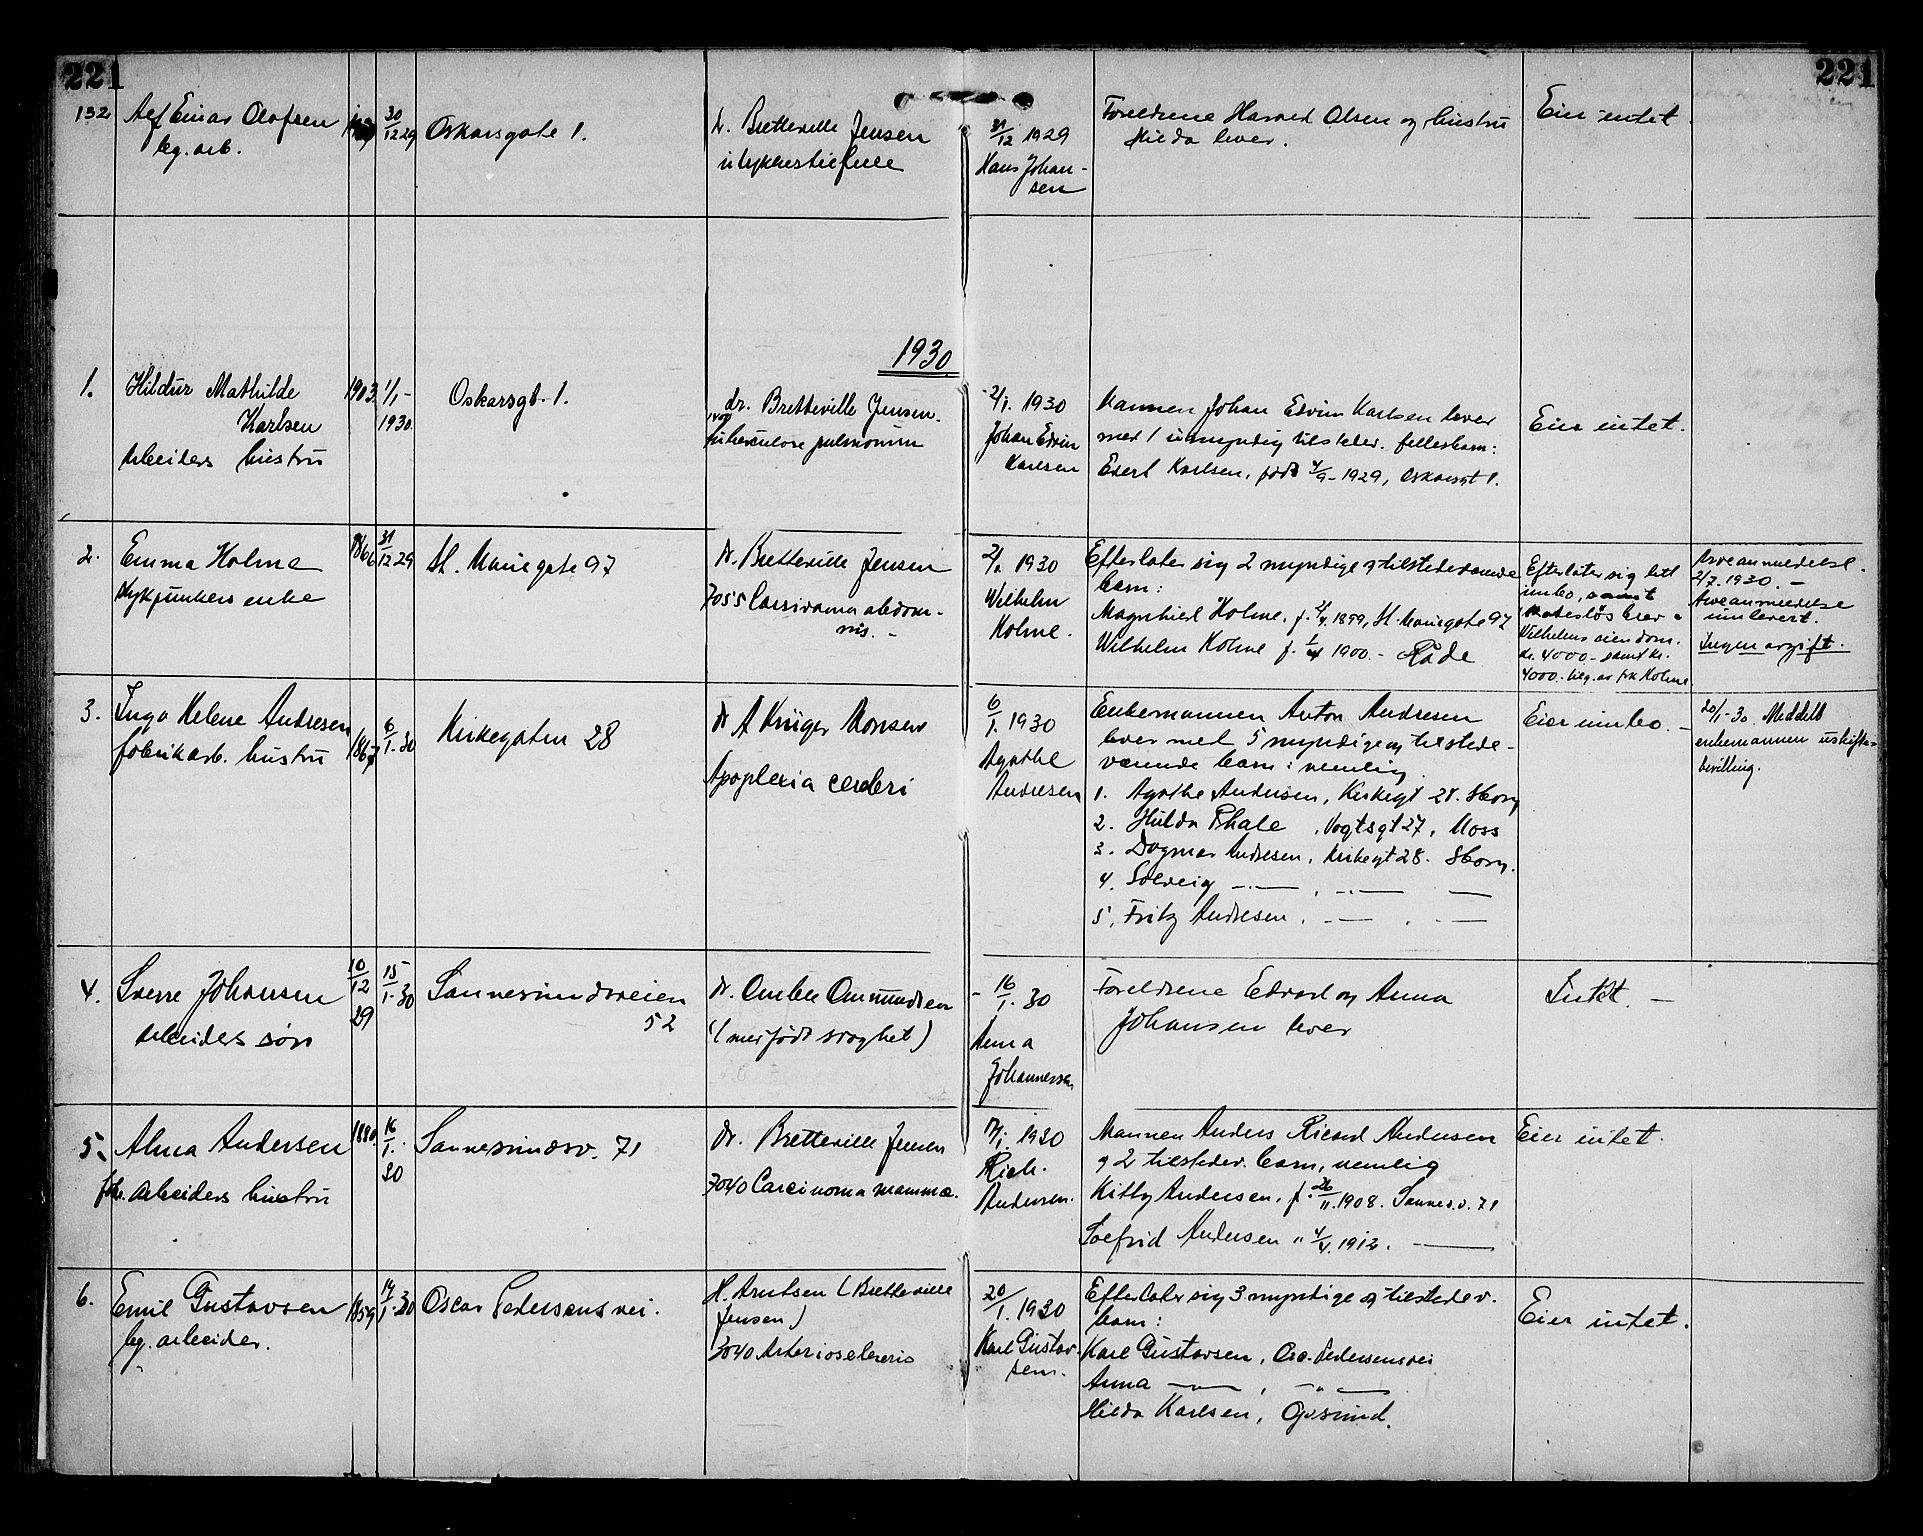 221
221
132
Alf Einar Olafsen
lg. arb.
30/12 29
Oskarsgate 1.
dr. Bretteville Jensen
ulykkestilfelle
31/12 1929
Hans Johan-
sen
Foreldrene Harald Olsen og hustru
Hilda lever.
Eier intet.
1930
1.
Hildur Mathilde
Karlsen
Arbeiders hustru
1903
1/1 -
1930.
Oskarsgt. 1.
dr. Bretteville Jensen.
tuberculose pulmonum
2/1. 1930
Johan Edvin
Karlsen
Mannen Johan Edvin Karlsen lever
med 1 umyndig tilstedev. fellesbarn:
Evert Karlsen, født 4/9 - 1929, Oskarsgt 1.
Eier intet.
2.
Emma Holme
1866
31/12 29
St. Mariegate 97
dr. Bretteville Jensen
7055 Carsinoma abdom-
nis. -
2/1. 1930
Wilhelm
Holme.
Efterlater sig 2 myndige og tilstedeværende
barn:
Magnhild Holme, f. 1899, St. Mariegate 97
Wilhelm Holme f. 1900. - Råde
Efterlater sig litt
innbo, samt
Wilhelms eiendom.
kr. 4000 - samt kr.
4000.
Arveanmeldelse.
2/7. 1930. -
Arveanmeldelse
innlevert.
Ingen avgift.
3.
Inga Helene Andresen
fabrikarb. hustru
1867
6/1. 30
Kirkegaten 28
dr A Krüger Monsen
Apoplexia cerebri
6/1. 1930
Agathe
Andresen
Enkemannen Anton Andresen
lever med 5 myndige og tilstede-
værende barn: nemlig
1. Agathe Andresen, Kirkegt 28. Sborg
2. Hulda Phale, Vogtsgt 27, Moss
3. Dagmar Andresen, Kirkegt 28. Sborg.
4. Solveig -"- , -"- -
5. Fritz Andresen, -"- . -"-
Eier innbo. -
20/1-30. Meddelt
enkemannen uskifte-
bevilling.
4.
Sverre Johansen
Arbeiders søn
10/12
29
15/1. 30
Sannesundsveien
52
dr. Omundsen
(medfødt svaghet)
16/1. 30
Anna
Johannessen
Foreldrene Edvard og Anna
Johansen lever
Intet. -
5.
Alma Andersen
fhv. arbeiders hustru
1880.
16/1.
30
Sannesundsv. 71
dr. Bretteville Jensen
7040 Carcinoma mammæ.
17/1. 1930
Rich.
Andersen.
Mannen Anders Ricard Andersen
og 2 tilstedev. barn, nemlig
Kitty Andersen, f. 26/11. 1908. Sannes.v. 71
Solfrid Andersen " 1912. -
Eier intet.
6.
Emil Gustavsen
lg. arbeider.
1859
14/1. 30
Oscar Pedersens vei.
H. Arntsen (Bretteville
Jensen)
3040 Arteriosclerosis
20/1. 1930
Karl Gustav-
sen.
Efterlater sig 3 myndige og tilstedev.
barn:
Karl Gustavsen, Osc. Pedersensvei
Anna -"- , -"-
Hilda Karlsen, Gresund.
Eier intet.